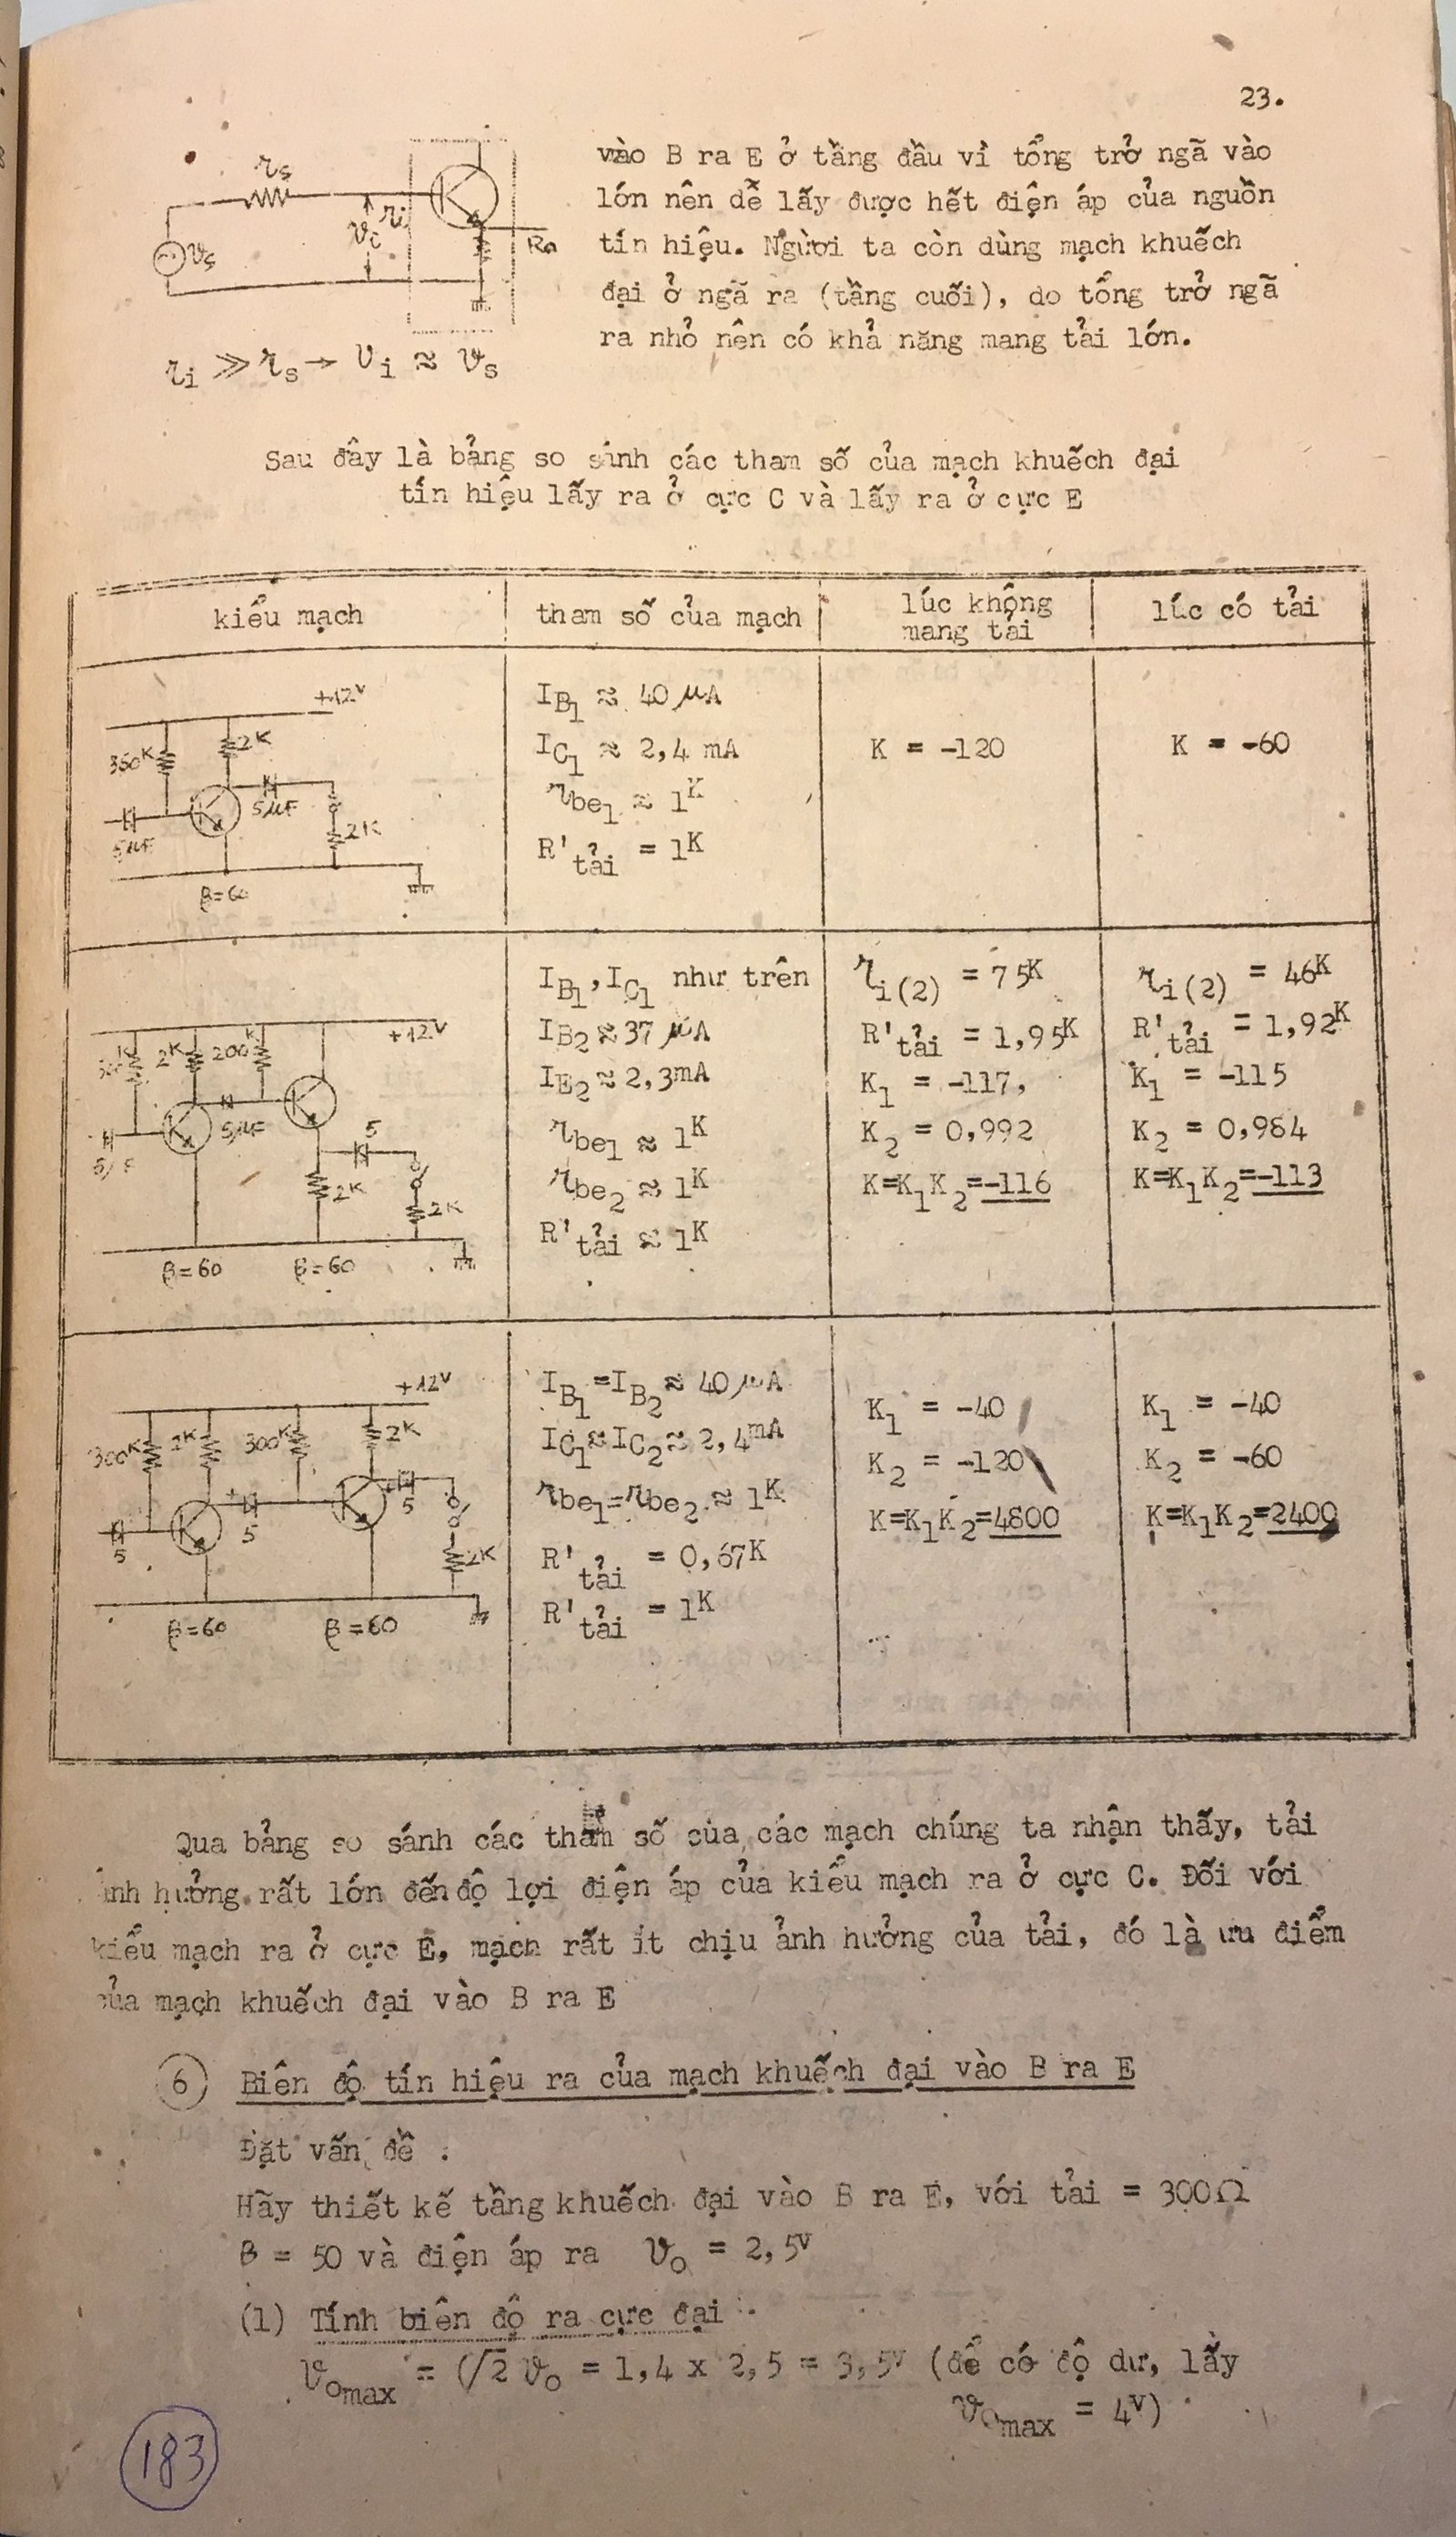 23.
vào B ra E ở tầng đầu vì tổng trở ngã vào
lớn nên dễ lấy được hết điện áp của nguồn
tín hiệu. Người ta còn dùng mạch khuếch
đại ở ngã ra (tầng cuối), do tổng trở ngã
ra nhỏ nên có khả năng mang tải lớn.
rs
vs
vi ri
ri ≫ rs → Vi ≈ vs
Sau đây là bảng so sánh các tham số của mạch khuếch đại
tín hiệu lấy ra ở cực C và lấy ra ở cực E
kiểu mạch
tham số của mạch
lúc không
mang tải
lúc có tải
+12V
2K
5µF
5µF
2K
β=60
IB1 ≈ 40 µA
IC1 ≈ 2,4 mA
rbe1 ≈ 1K
R'tải = 1K
K = -120
K = -60
+12V
2K
200K
5µF
5
2K
2K
β=60
β=60
IB1,IC1 như trên
IB2≈37 µA
IE2≈2,3mA
rbe1 ≈ 1K
rbe2 ≈ 1K
R'tải ≈ 1K
ri(2) = 75K
R'tải = 1,95K
K1 = -117,
K2 = 0,992
K=K1K2=-116
ri(2) = 46K
R'tải = 1,92K
K1 = -115
K2 = 0,984
K=K1K2=-113
+12V
300K
2K
300K
2K
5
5
5
2K
β=60
β=60
IB1=IB2≈ 40 µA
IC1≈IC2≈ 2,4mA
rbe1=rbe2 ≈ 1K
R'tải = 0,67K
R'tải = 1K
K1 = -40
K2 = -120
K=K1K2=4800
K1 = -40
K2 = -60
K=K1K2=2400
Qua bảng so sánh các tham số của các mạch chúng ta nhận thấy, tải
ảnh hưởng rất lớn đến độ lợi điện áp của kiểu mạch ra ở cực C. Đối với
kiểu mạch ra ở cực E, mạch rất ít chịu ảnh hưởng của tải, đó là ưu điểm
của mạch khuếch đại vào B ra E
6 Biên độ tín hiệu ra của mạch khuếch đại vào B ra E
Đặt vấn đề :
Hãy thiết kế tầng khuếch đại vào B ra E, với tải = 300Ω
β = 50 và điện áp ra vo = 2,5V
(1) Tính biên độ ra cực đại
vomax = (√2 vo = 1,4 x 2,5 = 3,5V (để có độ dư, lấy
vomax = 4V)
183